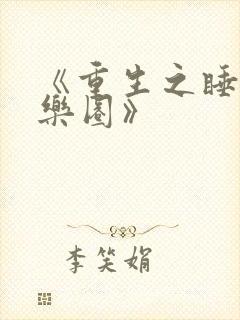 《重生之睡
樂園》
李笑娟